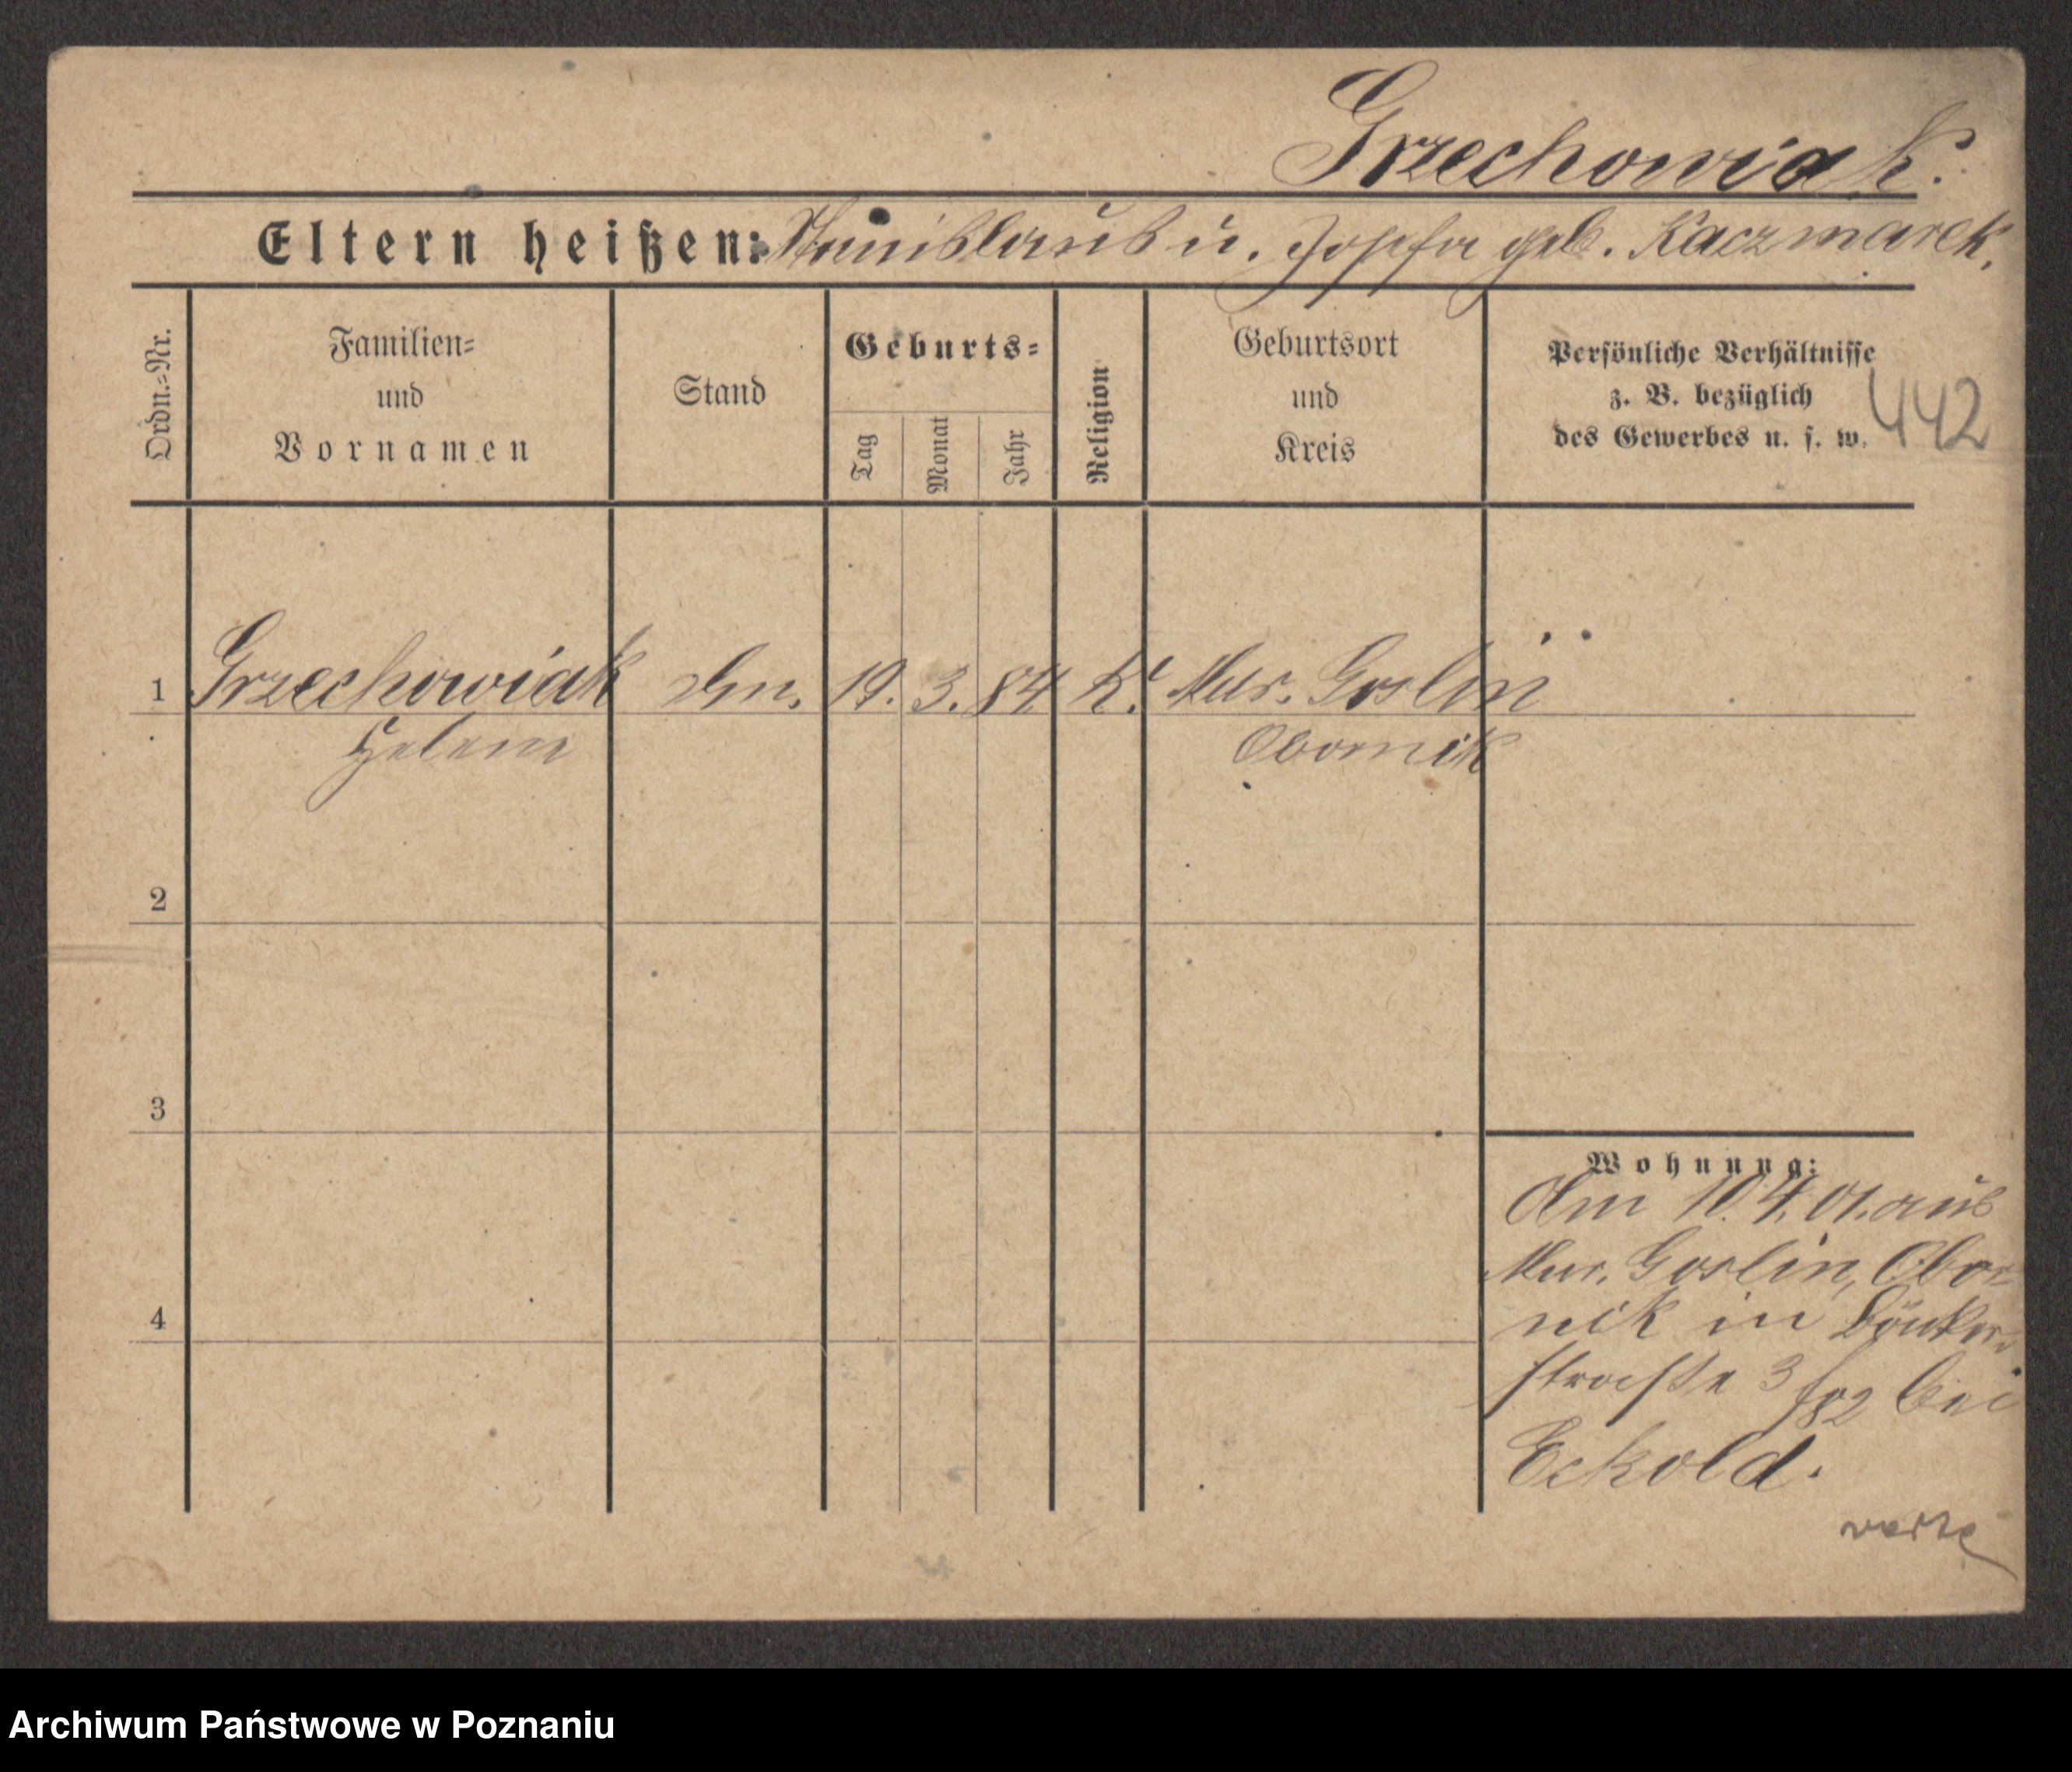 Grzechowiak.
Eltern heißen: Stanislaus u. Josefa geb. Kaczmarek.
Ordn.=Nr.
Familien=
und
Vornamen
Stand
Geburts=
Tag
Monat
Jahr
Religion
Geburtsort
und
Kreis
Persönliche Verhältnisse
z. B. bezüglich
des Gewerbes u. s. w.
442
1 Grzechowiak 19. 3. 84 K. Mur. Goslin
Helene Obornik
2
3
4
Wohnung:
Am 10.4.01. aus
Mur. Goslin, Obor-
nik in
straße 3 bei
Eckold.
verte
Archiwum Państwowe w Poznaniu